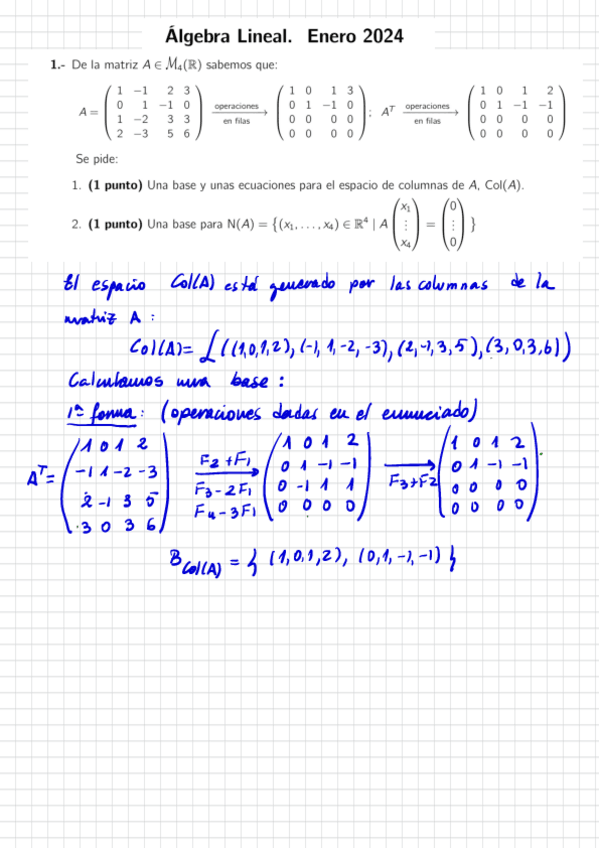 Álgebra Lineal. Enero 2024
1.- De la matriz A ∈ M₄(ℝ) sabemos que:
A = ( 1 −1 2 3 ; 0 1 −1 0 ; 1 −2 3 3 ; 2 −3 5 6 ) operaciones en filas → ( 1 0 1 3 ; 0 1 −1 0 ; 0 0 0 0 ; 0 0 0 0 ) ; Aᵀ operaciones en filas → ( 1 0 1 2 ; 0 1 −1 −1 ; 0 0 0 0 ; 0 0 0 0 )
Se pide:
1. (1 punto) Una base y unas ecuaciones para el espacio de columnas de A, Col(A).
2. (1 punto) Una base para N(A) = {(x₁, . . . , x₄) ∈ ℝ⁴ | A ( x₁ ⋮ x₄ ) = ( 0 ⋮ 0 ) }
El espacio Col(A) está generado por las columnas de la
matriz A :
Col(A) = L((1,0,1,2), (-1, 1, -2, -3), (2,-1,3,5), (3,0,3,6))
Calculamos una base :
1ª forma : (operaciones dadas en el enunciado)
Aᵀ = ( 1 0 1 2 ; -1 1 -2 -3 ; 2 -1 3 5 ; 3 0 3 6 ) F2+F1 F3-2F1 F4-3F1 → ( 1 0 1 2 ; 0 1 -1 -1 ; 0 -1 1 1 ; 0 0 0 0 ) → F3+F2 ( 1 0 1 2 ; 0 1 -1 -1 ; 0 0 0 0 ; 0 0 0 0 )
B Col(A) = { (1,0,1,2), (0,1,-1,-1) }